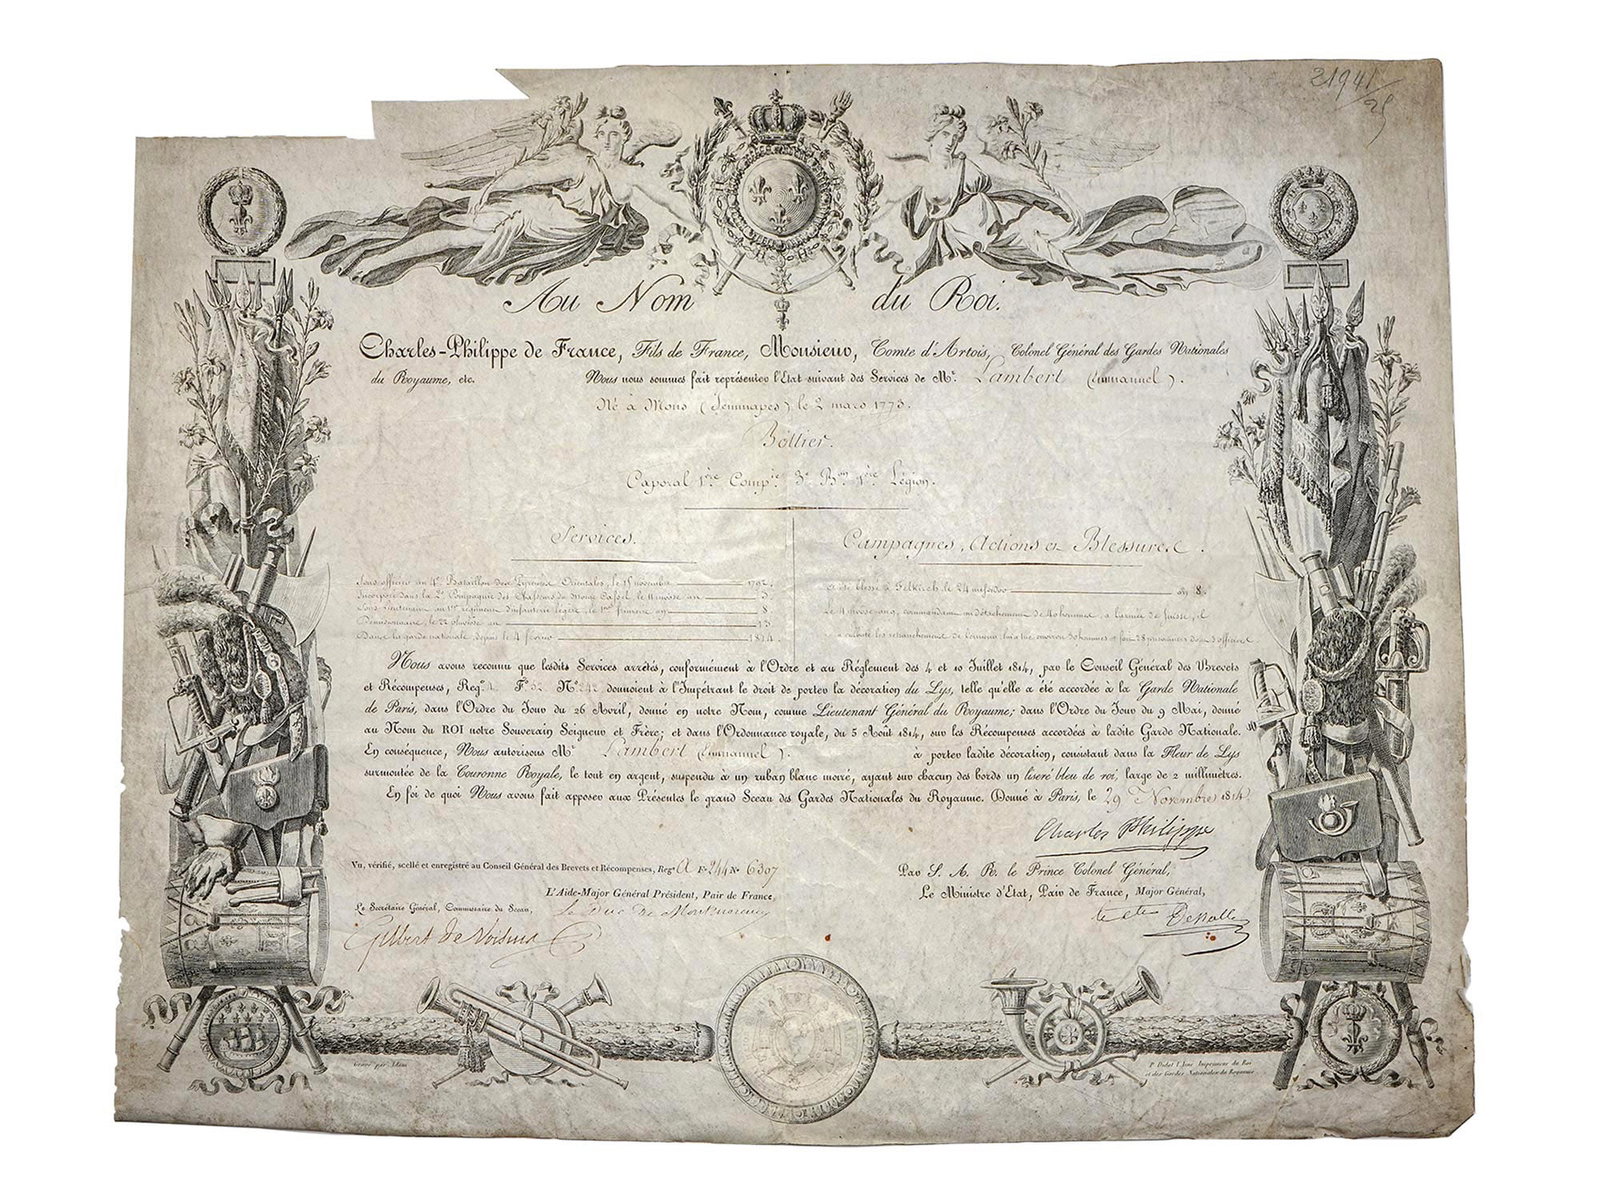 21941/25
Au Nom du Roi.
Charles-Philippe de France, Fils de France, Monsieur, Comte d'Artois, Colonel Général des Gardes Nationales
du Royaume, etc. Nous nous sommes fait représenter l'Etat suivant des Services de Mr. Lambert (Emmanuel).
Né à Mons (Jemmapes) le 2 mars 1773.
Bottier.
Caporal 1ère Compie 3e Bon 1ère Légion.
Services. Campagnes, Actions et Blessures.
Sous officier au 4e Bataillon des Pyrénées Orientales, le 15 novembre 1792.
a été blessé à Felkirch le 24 messidor an 8.
Incorporé dans la 2e Compagnie des Chasseurs de Mont Cassel, le 11 nivose an 3.
Sous-lieutenant au 1er régiment d'infanterie légère, le 1er frimaire an 8
Le 4 nivose an 9, commandant un détachement de 40 hommes, à l'armée de Suisse, il
Démissionnaire, le 22 pluviose an 13
Dans la garde nationale, depuis le 4 février 1814.
a culbuté les retranchements de l'ennemi, lui a tué environ 30 hommes et fait 28 prisonniers dont 3 officiers
Nous avons reconnu que lesdits Services arrêtés, conformément à l'Ordre et au Réglement des 4 et 10 Juillet 1814, par le Conseil Général des Brevets
et Récompenses, Reg. F° 32 N° 242 donnoient à l'Impétrant le droit de porter la décoration du Lys, telle qu'elle a été accordée à la Garde Nationale
de Paris, dans l'Ordre du Jour du 26 Avril, donné en notre Nom, comme Lieutenant Général du Royaume; dans l'Ordre du Jour du 9 Mai, donné
au Nom du ROI notre Souverain Seigneur et Frère; et dans l'Ordonnance royale, du 5 Août 1814, sur les Récompenses accordées à ladite Garde Nationale.
En conséquence, Nous autorisons Mr Lambert (Emmanuel). à porter ladite décoration, consistant dans la Fleur de Lys
surmontée de la Couronne Royale, le tout en argent, suspendu à un ruban blanc moiré, ayant sur chacun des bords un liseré bleu de roi, large de 2 millimètres.
En foi de quoi Nous avons fait apposer aux Présentes le grand Sceau des Gardes Nationales du Royaume. Donné à Paris, le 29 Novembre 1814.
Charles Philippe
Vu, vérifié, scellé et enregistré au Conseil Général des Brevets et Récompenses, Regre A F° 244 N° 6307
Par S. A. R. le Prince Colonel Général,
L'Aide-Major Général Président, Pair de France,
Le Ministre d'Etat, Pair de France, Major Général,
Le Secrétaire Général, Commissaire du Sceau,
Le Duc de Montmorency
Gilbert de Voisins
Le Cte Dessolle
Gravé par Adam
P. Didot l'Ainé Imprimeur du Roi
et des Gardes Nationales du Royaume